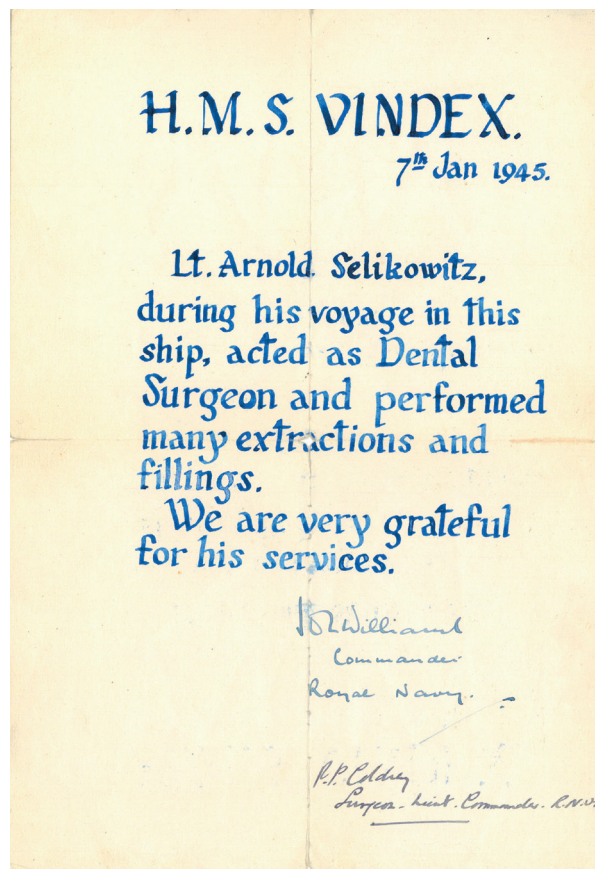 H.M.S. VINDEX.
7th Jan 1945.
Lt. Arnold Selikowitz,
during his voyage in this
ship, acted as Dental
Surgeon and performed
many extractions and
fillings.
We are very grateful
for his services.
Williams
Commander
Royal Navy.
R.P. Coldrey
Surgeon-Lieut. Commander. R.N.V.